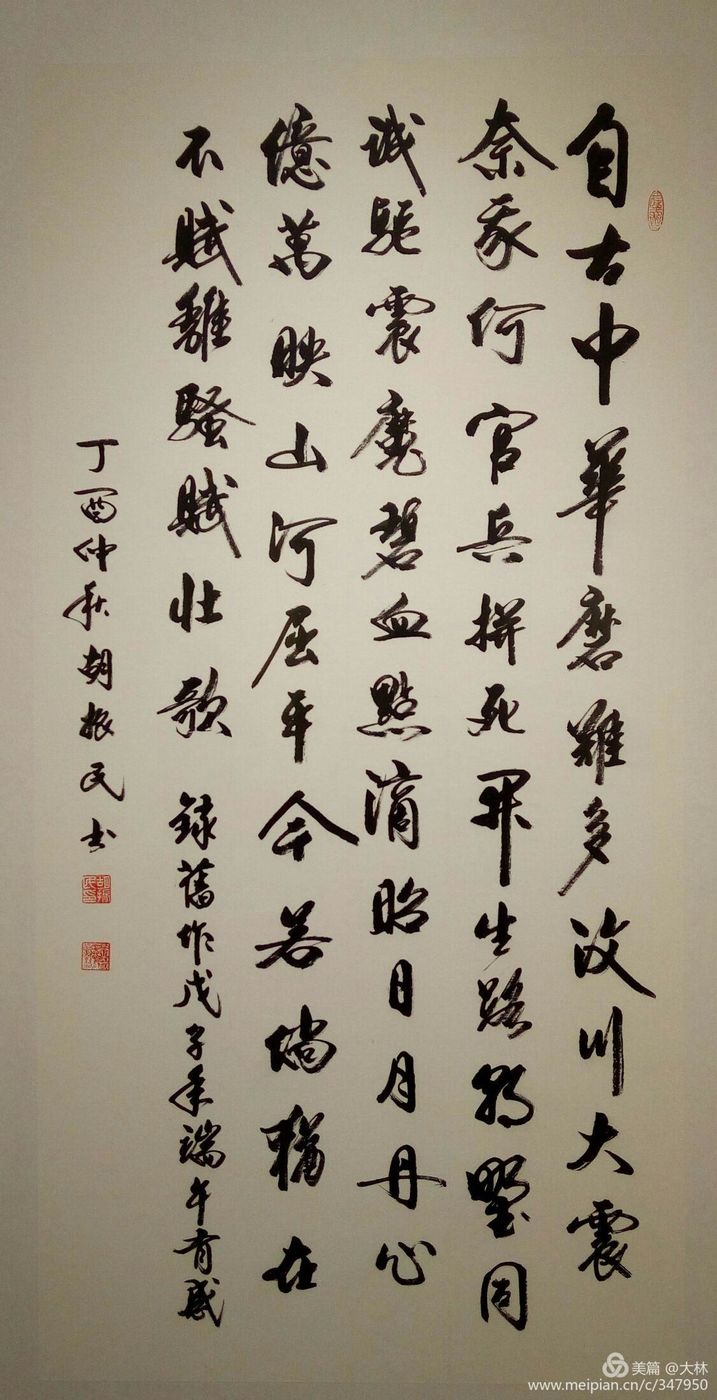 自古中華磨難多汶川大震
奈我何官兵拼死開生路朝野同
誠驅震魔碧血點滴昭日月丹心
億萬映山河屈平今若倘猶在
不賦離騷賦壯歌 錄舊作戊子年端午有感
丁酉仲秋胡振民书
美篇 @大林
www.meipian.cn/c/347950